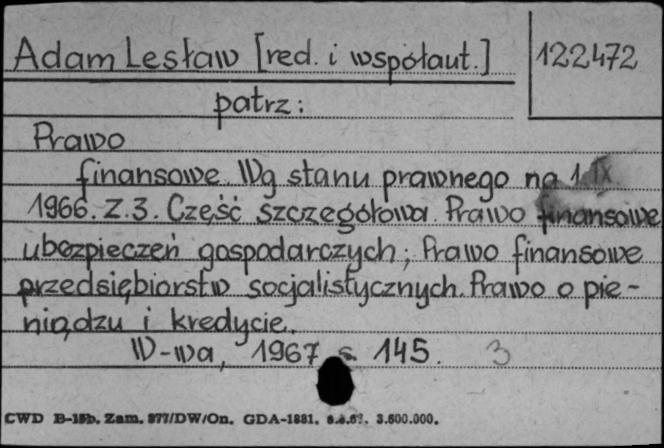 Adam Lesław [red. i współaut.] 122472
patrz:
Prawo
finansowe. Wg stanu prawnego na 1.IX
1966. Z.3. Część szczegółowa. Prawo finansowe
ubezpieczeń gospodarczych; Prawo finansowe
przedsiębiorstw socjalistycznych. Prawo o pie-
niądzu i kredycie.
W-wa, 1967 s. 145. 3
CWD B-15b. Zam. 877/DW/On. GDA-1881. 3.600.000.